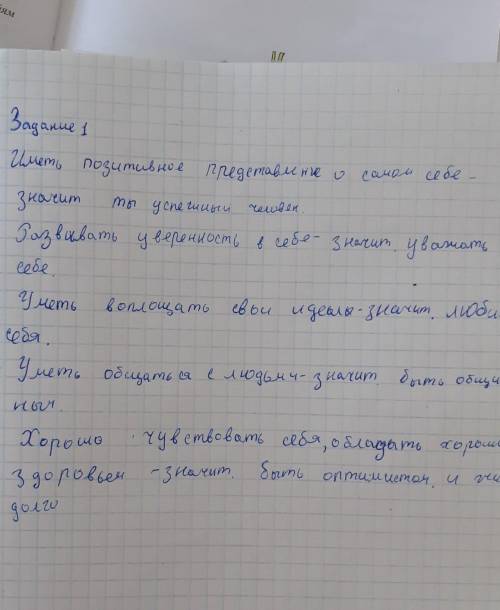 Задание 1
Иметь позитивное представление о самом себе -
значит ты успешный человек.
Развивать уверенность в себе - значит уважать
себе.
Уметь воплощать свои идеалы - значит люби
себя.
Уметь общаться с людьми - значит быть общи
ным.
Хорошо чувствовать себя, обладать хорош
здоровьем - значит быть оптимистом и жи
долго